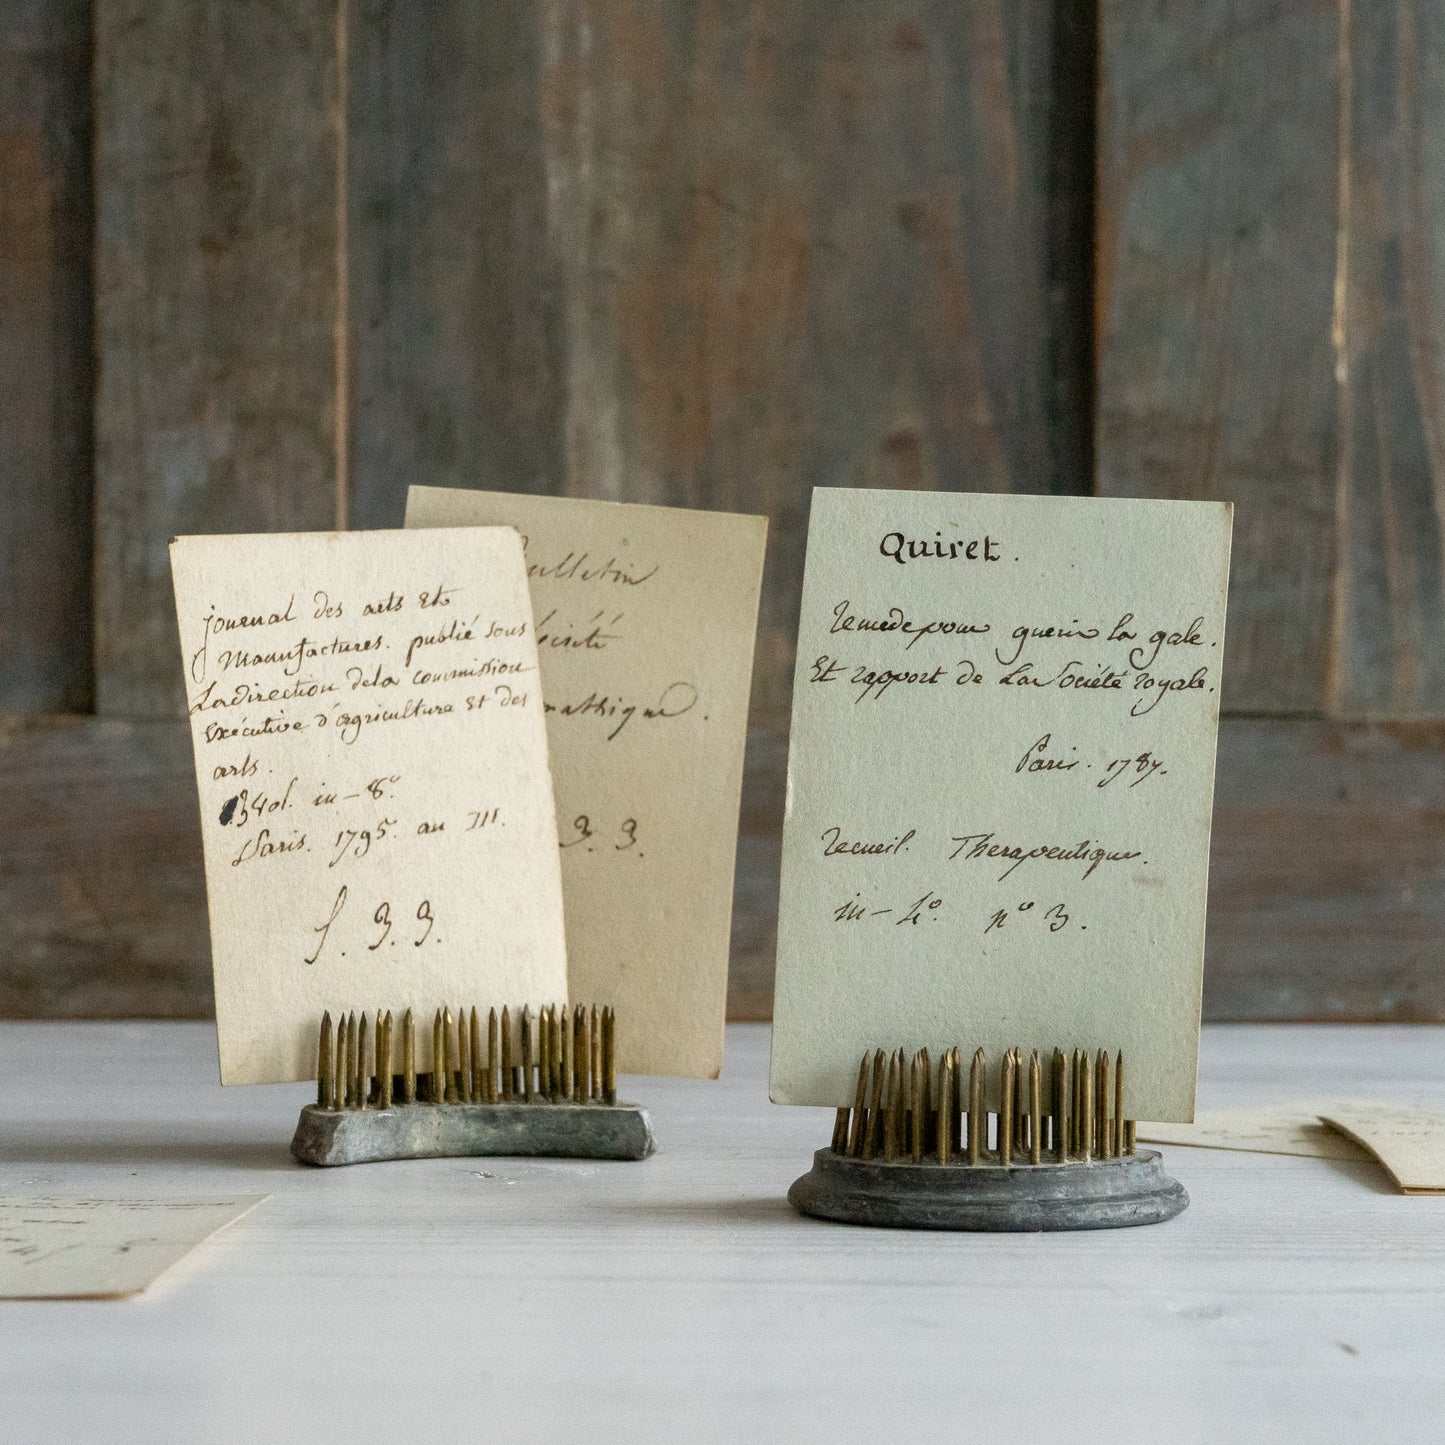 journal des arts Et
Manufactures. publié sous
La direction de la commission
Exécutive d'agriculture Et des
arts.
3 Vol. in-8.º
Paris. 1795. an III.
f. 3. 3.
ulletin
mathique.
3. 3.
Quiret.
Remède pour guerir la gale.
Et rapport de La Société royale.
Paris. 1787.
Recueil. Therapeutique.
in-4.º nº 3.